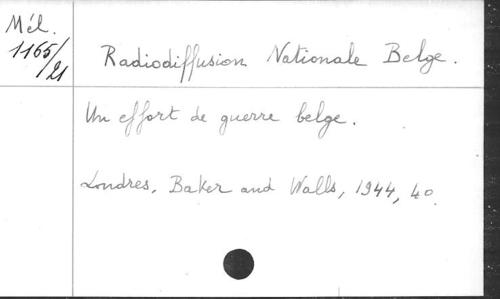 Mél.
1165/21
Radiodiffusion Nationale Belge.
Un effort de guerre belge.
Londres, Baker and Walls, 1944, 40.